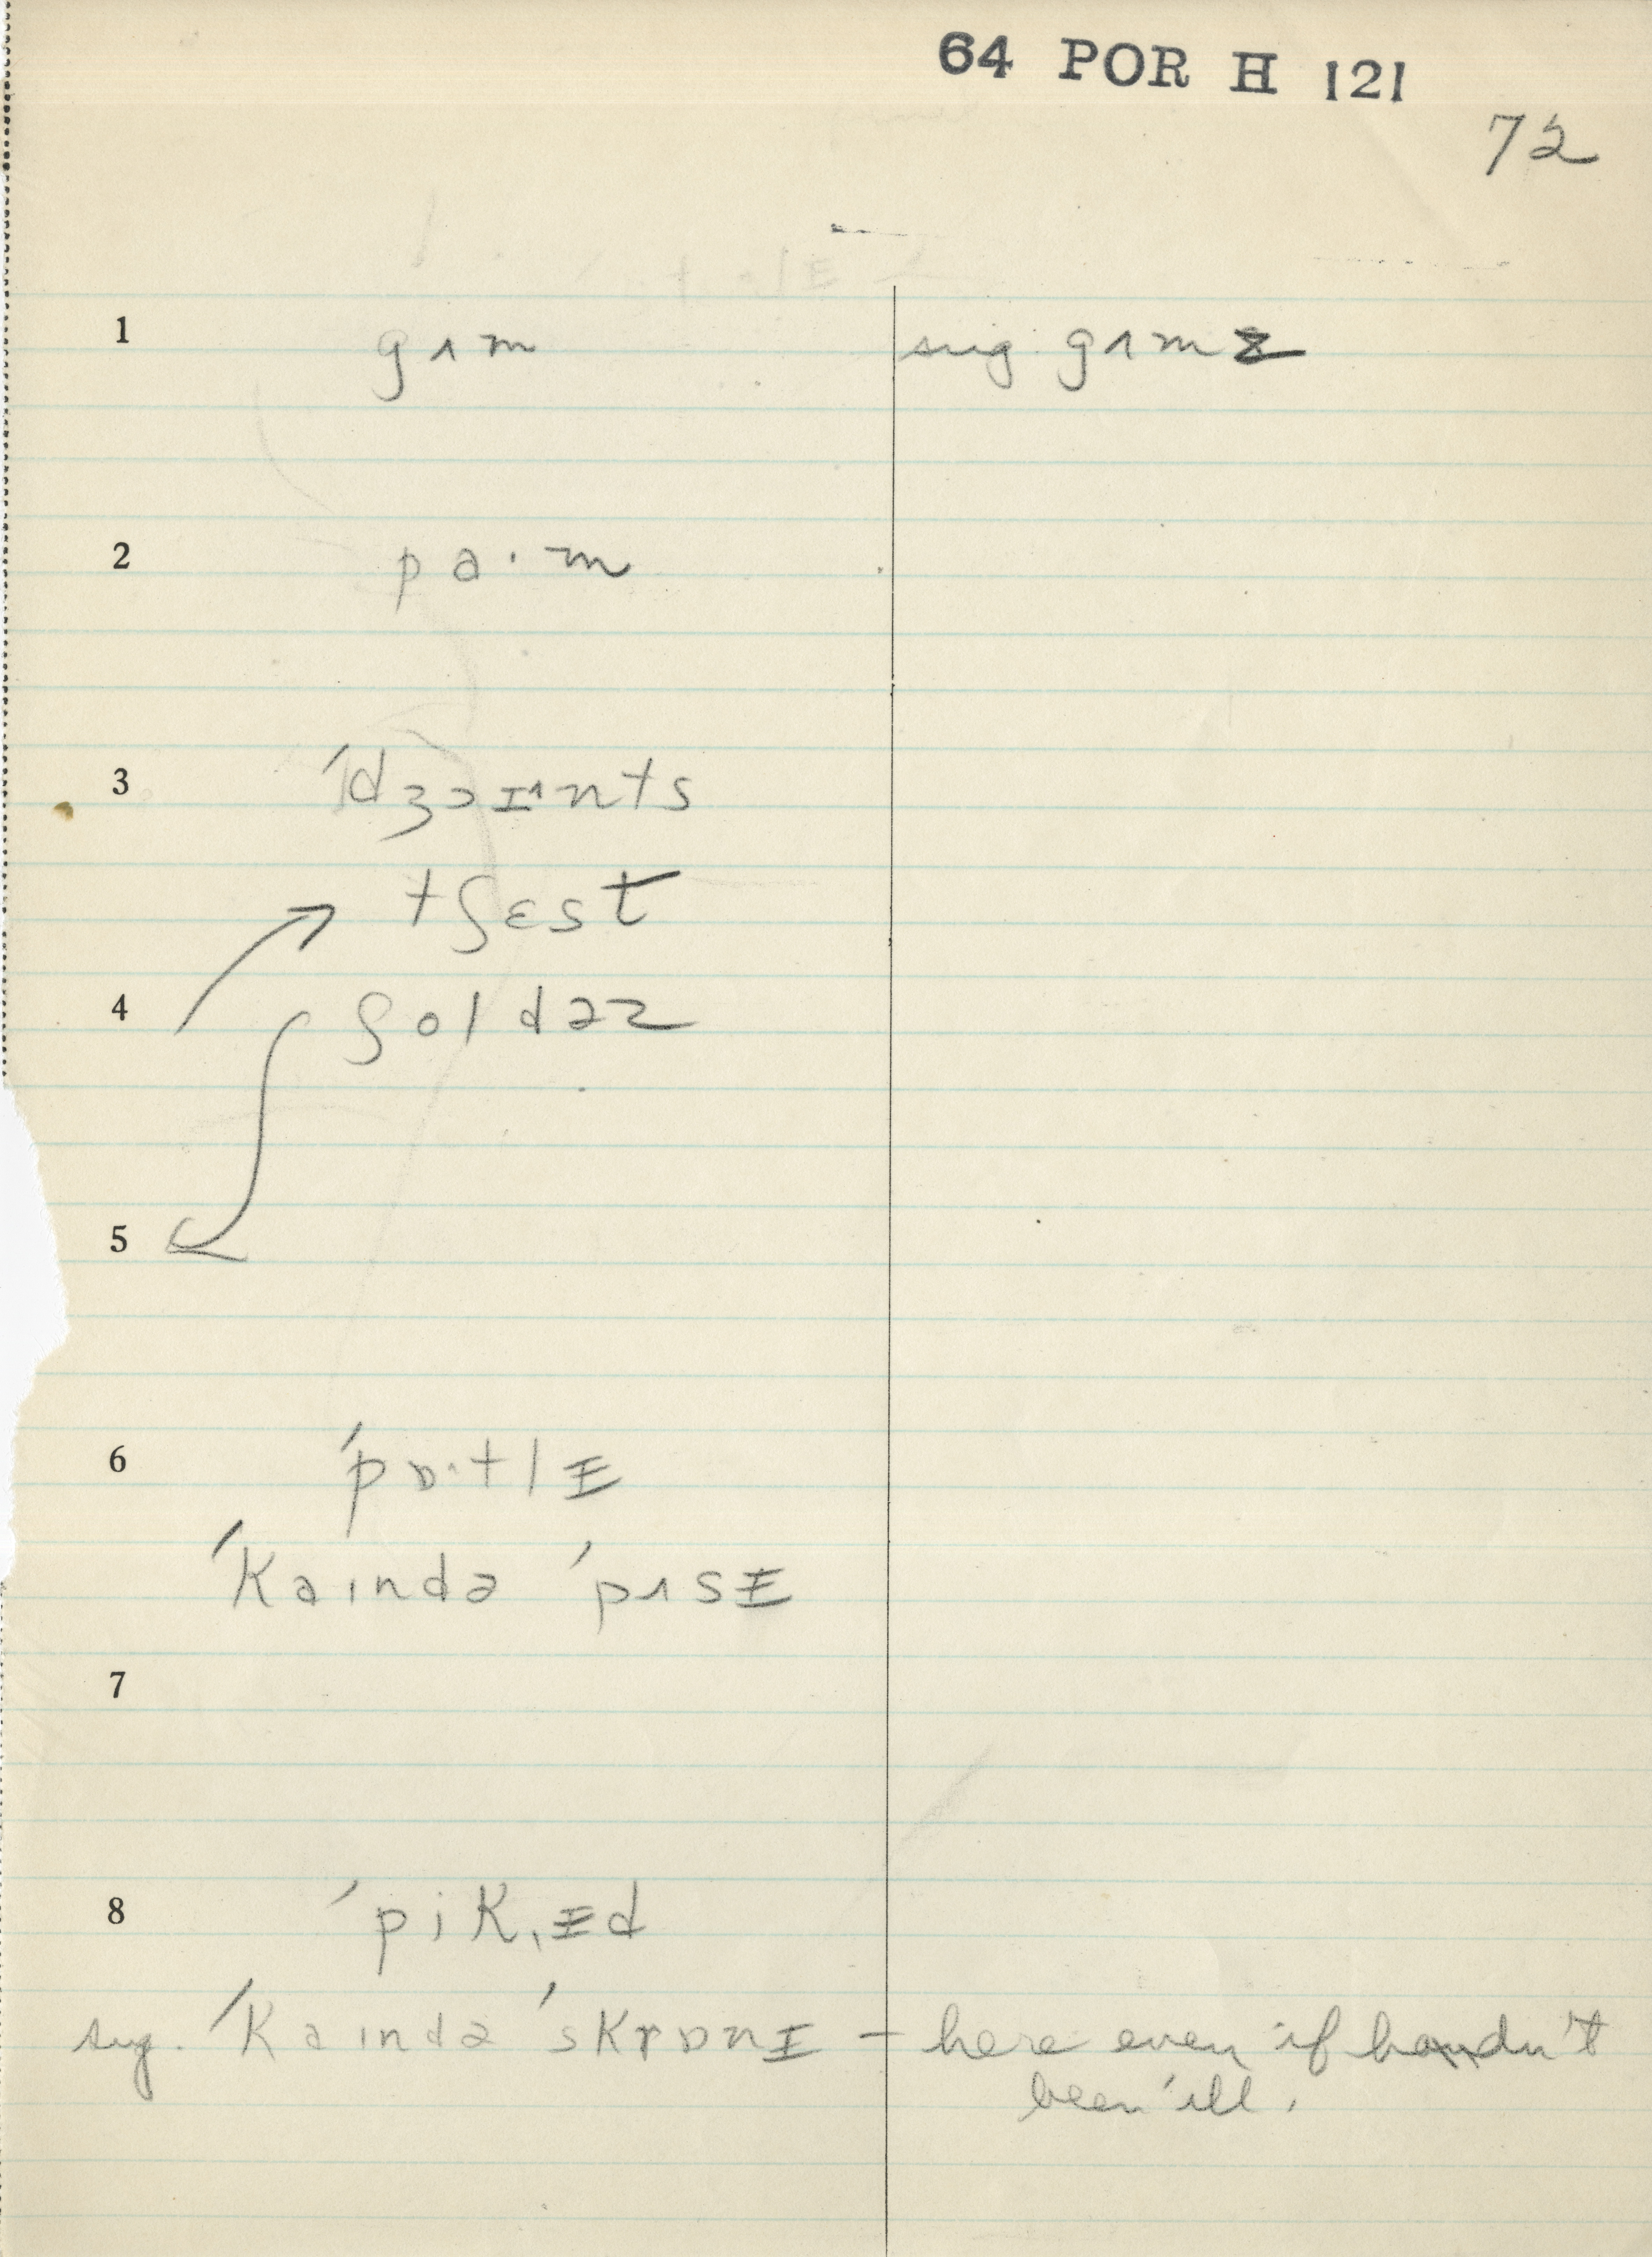 64 POR H 121
72
1 gʌm sug. gʌmz
2 pa·m
3 ˈdʒɔɪˆnts
tʃɛst
4 ʃoldəz
5
6 ˈpɒ·tlɪ
ˈkaində ˈpʌsɪ
7
8 ˈpikˌɪd
sug. ˈkaində ˈskrɒnɪ – here even if hadn't
been ill.